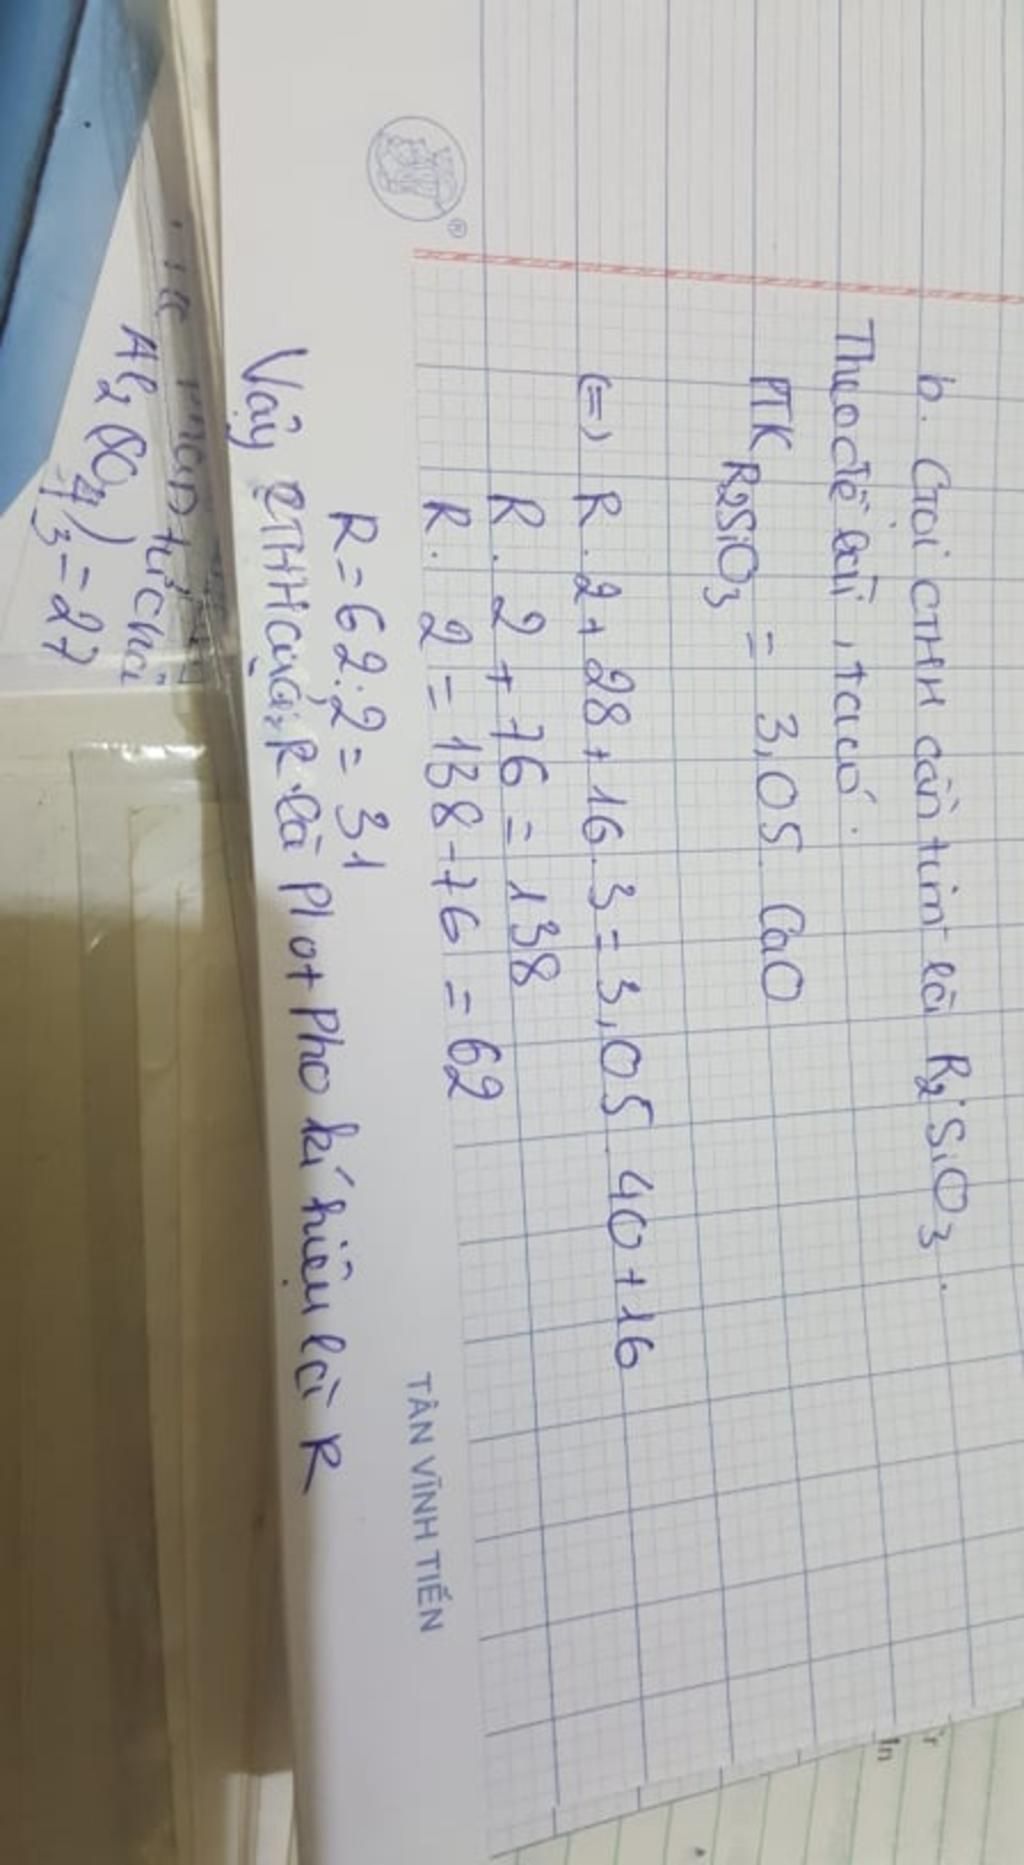 b. Gọi CTHH cần tìm là R2SiO3.
Theo đề bài, ta có.
PTK R2SiO3 = 3,05. CaO
(=) R.2+28+16.3=3,05.40+16
R.2+76=138
R.2=138-76=62
R=62:2=31
Vậy CTHH của R là Plot Pho kí hiệu là R
TÂN VĨNH TIẾN
®
tử chất
Al2(SO4)3=27